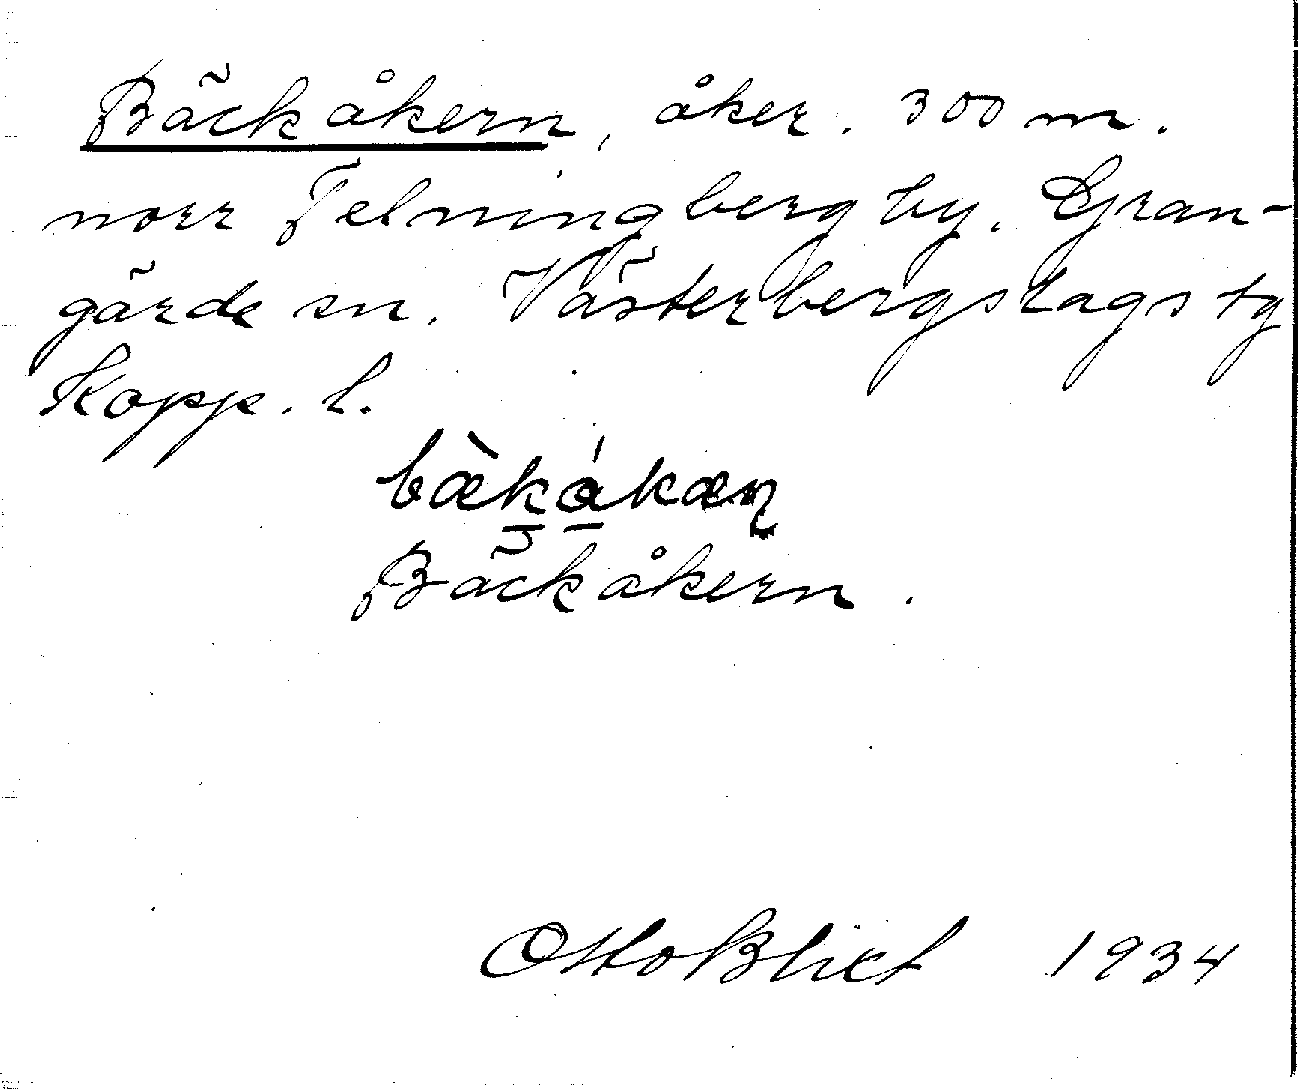 Bäckåkern, åker. 300 m.
norr Felningberg by. Gran-
gärde sn. Västerbergslags tg
Kopp. l.
bæ̀kákæn
Bäckåkern.
Otto Blixt 1934